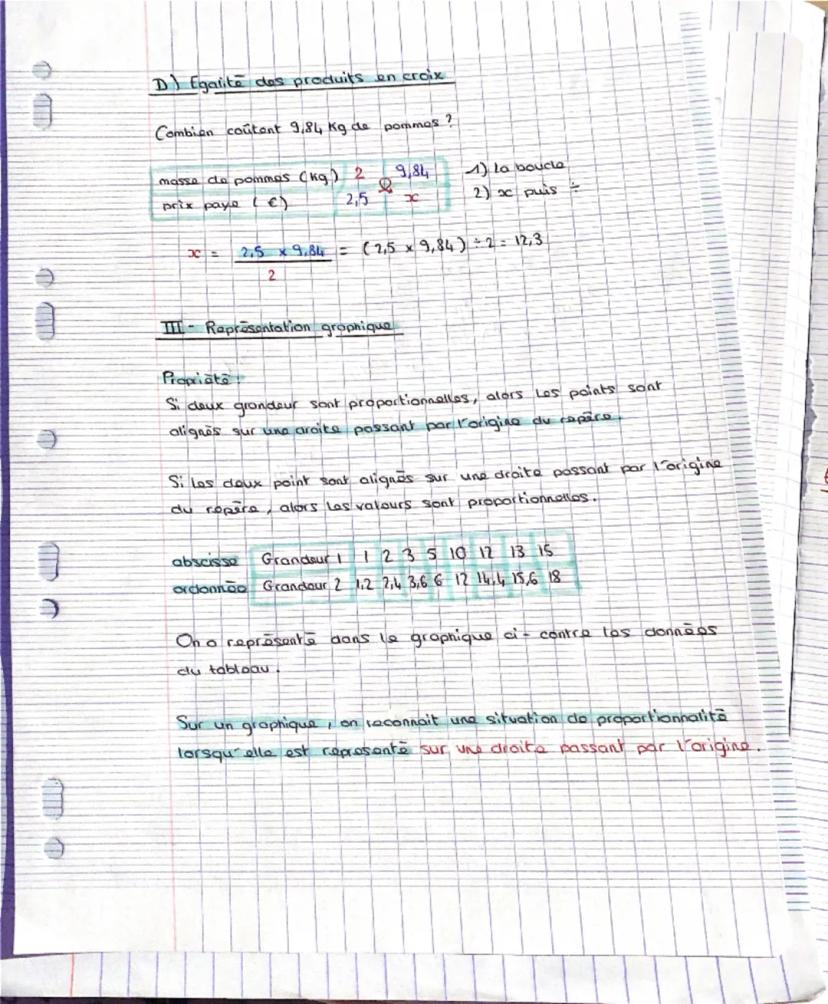 D) Egalité des produits en croix
Combien coûtent 9,84 Kg de pommes ?
masse de pommes (Kg) 2 9,84
prix paye (€) 2,5 x
1) la boucle
2) x puis ÷
x = 2,5 x 9,84 / 2 = (2,5 x 9,84) ÷ 2 = 12,3
III - Représentation graphique
Propriété :
Si deux grandeur sont proportionnelles, alors les points sont
alignés sur une droite passant par l'origine du repère.
Si les deux point sont alignés sur une droite passant par l'origine
du repère, alors les valeurs sont proportionnelles.
abscisse Grandeur 1 1 2 3 5 10 12 13 15
ordonnée Grandeur 2 1,2 2,4 3,6 6 12 14,4 15,6 18
On a représenté dans le graphique ci-contre les données
du tableau.
Sur un graphique, on reconnait une situation de proportionnalité
lorsqu'elle est représenté sur une droite passant par l'origine.